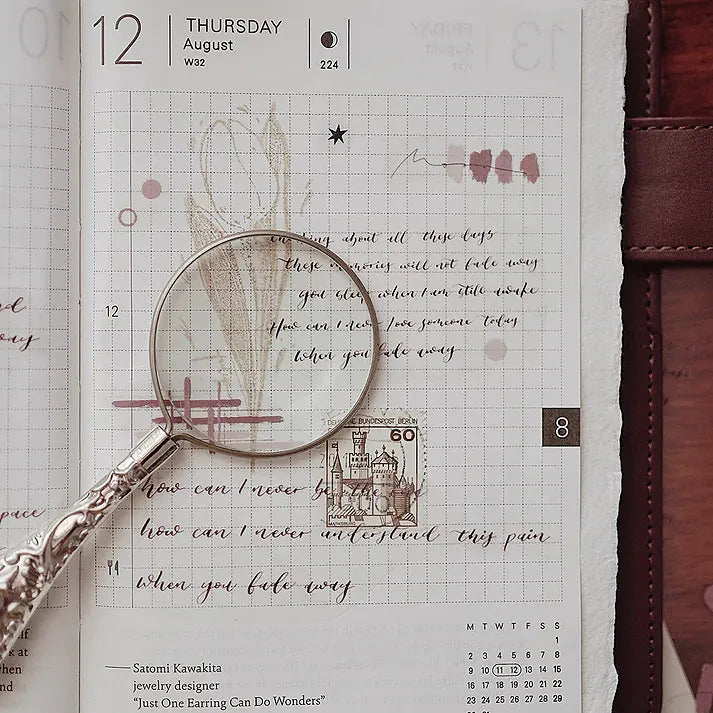 12 THURSDAY
August
W32
224
about all these days
these memories will not fade away
you sleep when I am still awake
How can I never love someone today
when you fade away
12
DEUTSCHE BUNDESPOST BERLIN
60
8
how can I never be the
how can I never understand this pain
when you fade away
space
M T W T F S S
1
2 3 4 5 6 7 8
9 10 11 12 13 14 15
16 17 18 19 20 21 22
23 24 25 26 27 28 29
30 31
Satomi Kawakita
jewelry designer
"Just One Earring Can Do Wonders"